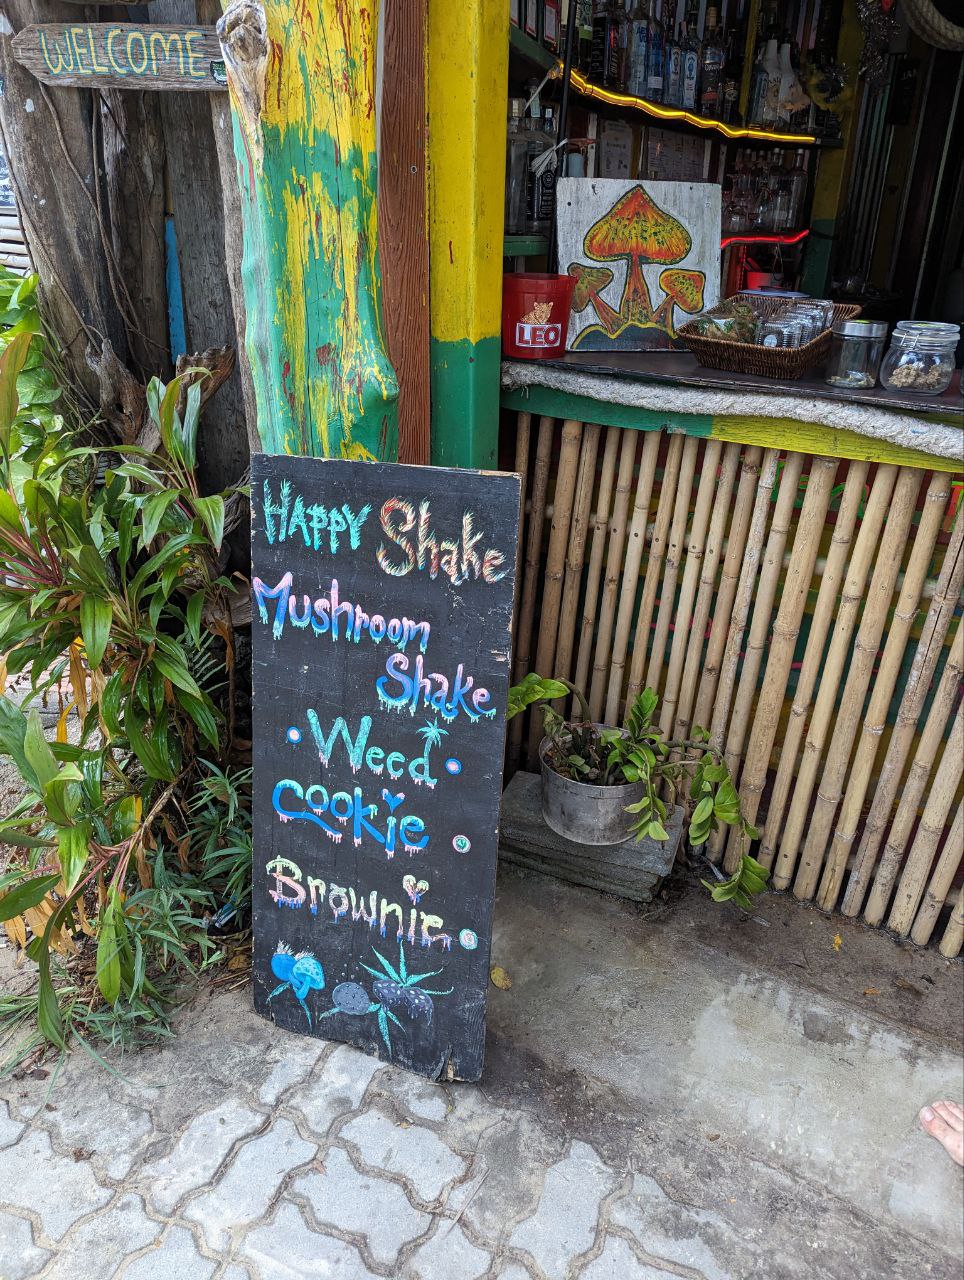 WELCOME
LEO
HAPPY Shake
Mushroom
Shake
Weed
Cookie
Brownie